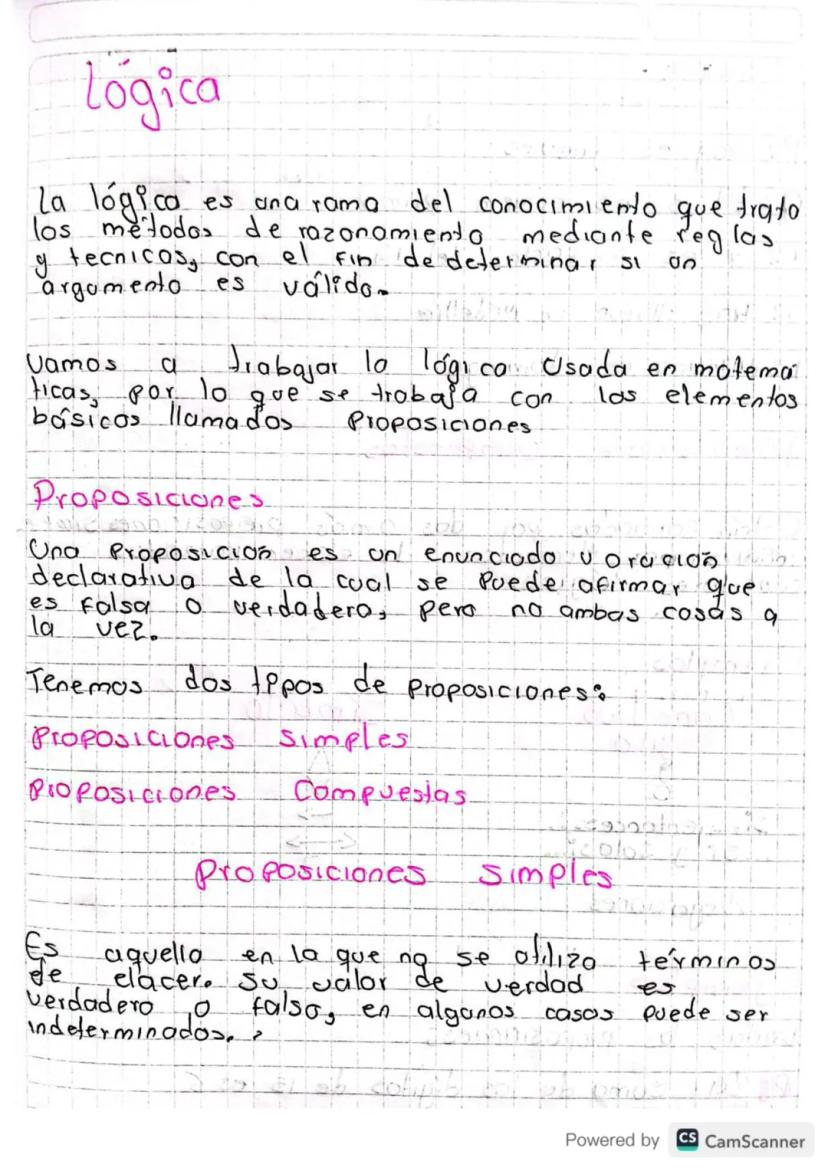 Lógica
La lógica es una rama del conocimiento que trata
los métodos de razonamiento mediante reglas
y tecnicas, con el fin de determinar si un
argumento es válido.
Vamos a trabajar la lógica usada en matema
ticas, por lo que se trabaja con los elementos
básicos llamados Proposiciones
Proposiciones
Una Proposición es un enunciado u oración
declarativa de la cual se Puede afirmar que
es falsa o verdadera, pero no ambas cosas a
la vez.
Tenemos dos tipos de proposiciones:
Proposiciones simples
Proposiciones Compuestas
Proposiciones simples
Es aquella en la que no se utiliza términos
de elacer. Su valor de verdad es
verdadero o falso, en algunos casos puede ser
indeterminados.
Powered by CS CamScanner